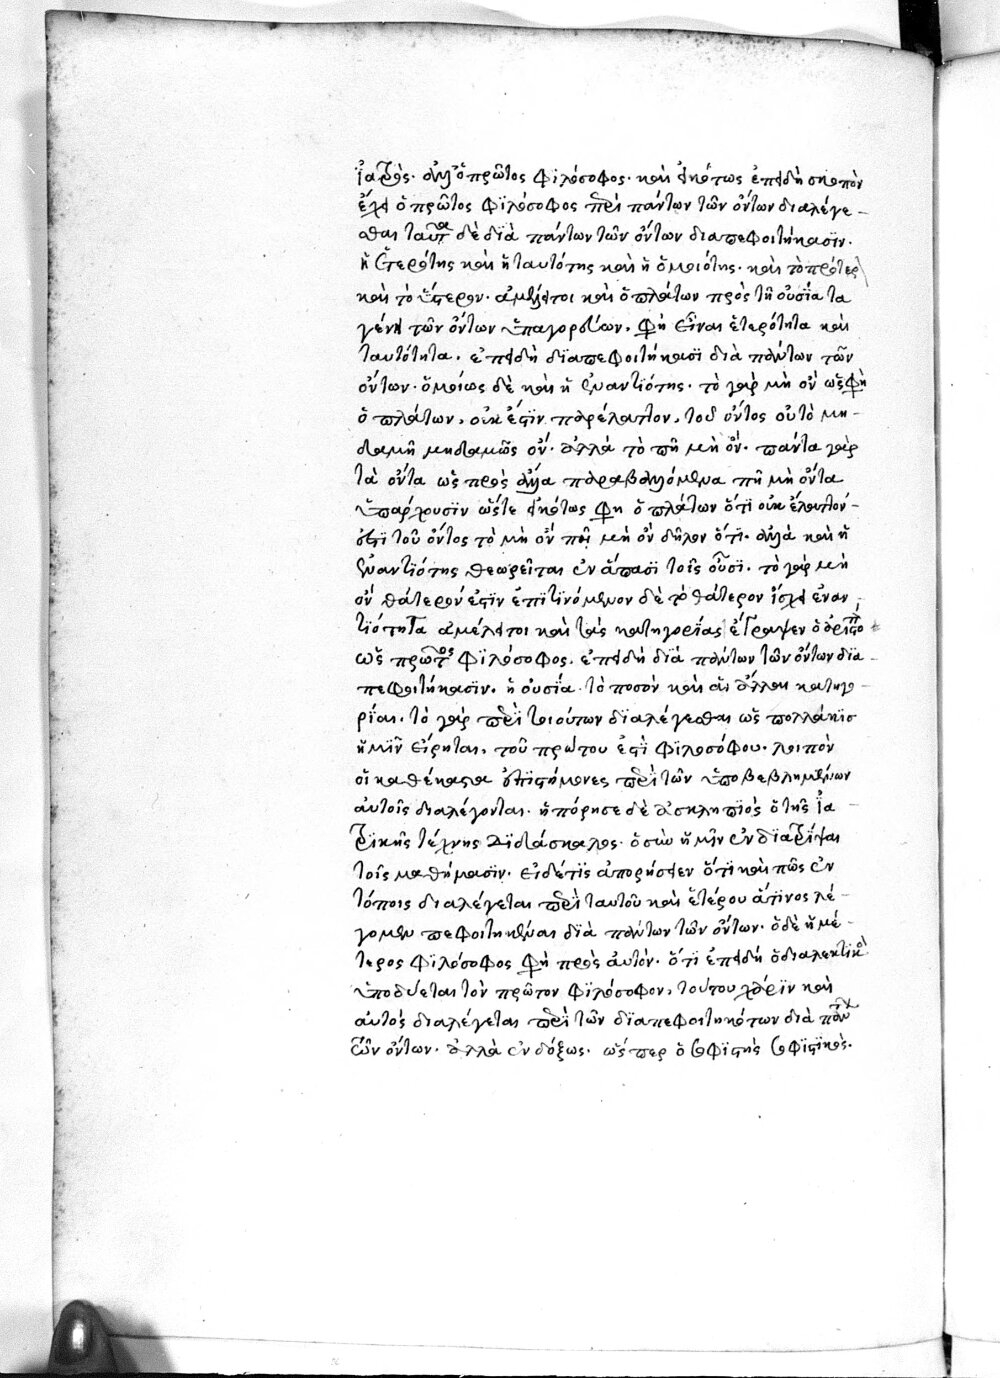 ἰατρός. ἀλλ' ὁ πρῶτος φιλόσοφος. καὶ εἰκότως ἐπειδὴ σκοπὸν
ἔχει ὁ πρῶτος φιλόσοφος περὶ πάντων τῶν ὄντων διαλέγε-
σθαι ταῦτα δὲ διὰ πάντων τῶν ὄντων διαπεφοιτήκασϊν.
ἡ ἑτερότης καὶ ἡ ταυτότης καὶ ἡ ὁμοιότης. καὶ τὸ πρότερον
καὶ τὸ ὕστερον. ἀμέλειτοι καὶ ὁ πλάτων πρὸς τῆ οὐσία τα
γένη τῶν ὄντων ὑπαγορεύων, φη εἶναι ἑτερότητα καὶ
ταυτότητα. ἐπειδὴ δϊαπεφοιτήκασϊ διὰ πάντων τῶν
ὄντων. ὁμοίως δὲ καὶ ἡ ἐναντϊότης. τὸ γὰρ μὴ ὂν ὥς φη
ὁ πλάτων, οὐκ ἔστϊν παρέλαττον, τοῦ ὄντος οὐτὸ μη-
δαμῆ μηδαμῶς ὄν. ἀλλὰ τὸ πῆ μὴ ὄν. πάντα γὰρ
τὰ ὄντα ὡς πρὸς ἄλλα παραβαλλόμενα πῆ μὴ ὄντα
ὑπάρχουσϊν ὥστε εἰκότως φη ὁ πλάτων ὅτϊ οὐκ ἔλαττον
ἐστϊ τοῦ ὄντος τὸ μὴ ὂν πῆ μὴ ὂν δῆλον ὅτϊ. ἀλλὰ καὶ ἡ
ἐναντϊότης θεωρεῖται ἐν ἅπασϊ τοῖς οὖσϊ. τὸ γὰρ μὴ
ὂν θάτερόν ἐστϊν ἐπϊτϊνόμενον δὲ τὸ θάτερον ἴσχει ἐναν-
τϊότητα ἀμέλειτοι καὶ τὰς κατηγορίας ἔγραψεν ὁ ἀριστο
ὡς πρῶτος φϊλόσοφος. ἐπειδὴ διὰ πάντων τῶν ὄντων δϊα-
πεφοιτήκασϊν. ἡ οὐσϊα. τὸ ποσὸν καὶ αἱ ἄλλαι κατηγο-
ρϊαι. τὸ γὰρ περὶ τοιούτων δϊαλέγεσθαι ὡς πολλάκϊς
ἡμῖν εἴρηται, τοῦ πρώτου ἐστὶ φϊλοσόφου. λοιπὸν
οἱ καθέκαστα ἐπϊστήμονες περὶ τῶν ὑποβεβλημένων
αὐτοῖς διαλέγονται. ἠπόρησε δὲ ἀσκληπϊὸς ὁ τῆς ἰα-
τρϊκῆς τέχνης δϊδάσκαλος. ὁ σὺν ἡμῖν ἐνδϊατρίψαι
τοῖς μαθήμασϊν. εἰδέτϊς ἀπορήσειεν ὅτϊ καὶ πῶς ἐν
τόποις διαλέγεται περὶ ταυτοῦ καὶ ἑτέρου ἅτϊνος λέ-
γομεν πεφοιτηκέναι δϊὰ πάντων τῶν ὄντων. ὁ δὲ ἡμέ-
τερος φϊλόσοφος φη πρὸς αὐτόν. ὅτϊ ἐπειδὴ ὁ διαλεκτϊκὸς
ὑποδύεται τὸν πρῶτον φϊλόσοφον, τούτου χάρϊν καὶ
αὐτὸς διαλέγεται περὶ τῶν δϊαπεφοιτηκότων διὰ πάντων
τῶν ὄντων. ἀλλὰ ἐνδόξως. ὥσπερ ὁ σοφϊστὴς σοφϊστϊκὸς.